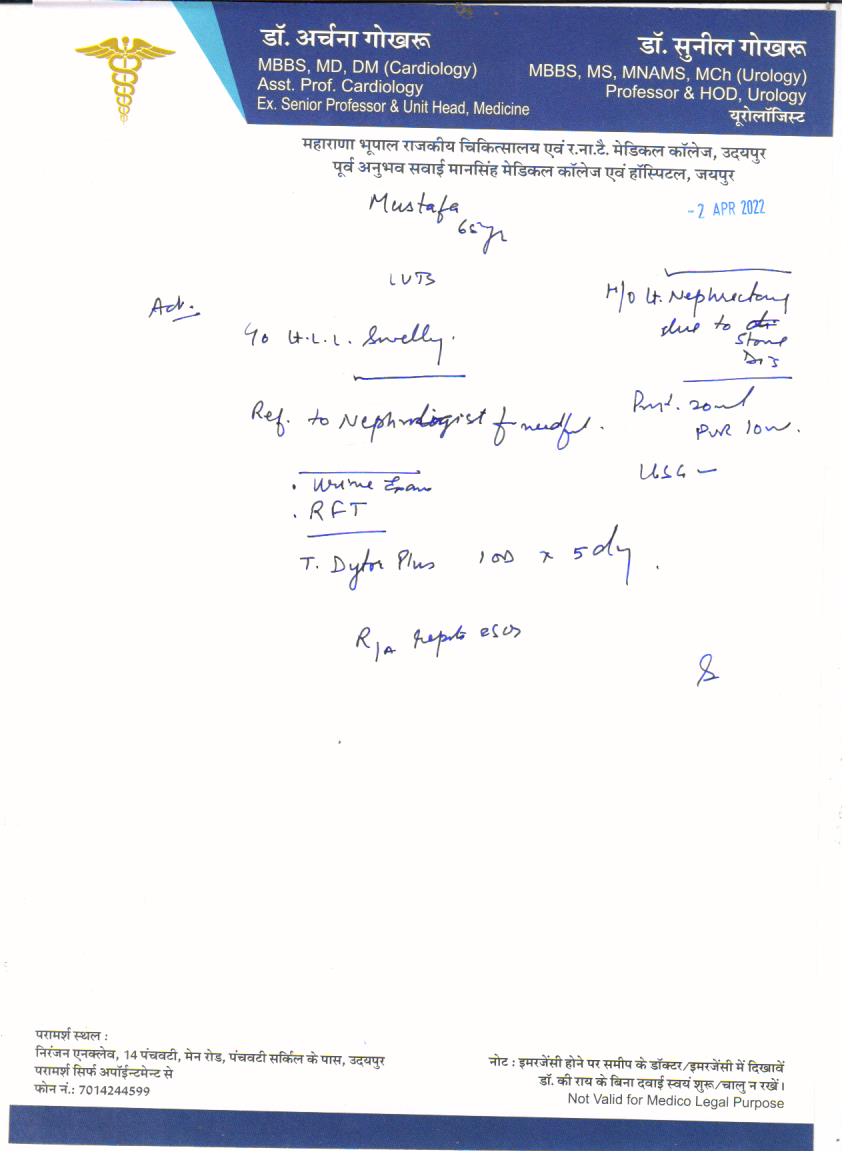 डॉ. अर्चना गोखरू
MBBS, MD, DM (Cardiology)
Asst. Prof. Cardiology
Ex. Senior Professor & Unit Head, Medicine
डॉ. सुनील गोखरू
MBBS, MS, MNAMS, MCh (Urology)
Professor & HOD, Urology
यूरोलॉजिस्ट
महाराणा भूपाल राजकीय चिकित्सालय एवं र.ना.टै. मेडिकल कॉलेज, उदयपुर
पूर्व अनुभव सवाई मानसिंह मेडिकल कॉलेज एवं हॉस्पिटल, जयपुर
Mustafa
65 yr
-2 APR 2022
LUTS
H/O Lt. Nephrectomy
due to
Stone
Adv.
Lt. L.L. Swelly.
Ref. to Nephrologist f needful.
20ml
PVR 10ml.
USG –
. Urine Exam
. RFT
T. Dytor Plus 1OD x 5 dy.
R/A
परामर्श स्थल :
निरंजन एनक्लेव, 14 पंचवटी, मेन रोड, पंचवटी सर्किल के पास, उदयपुर
परामर्श सिर्फ अपॉईन्टमेन्ट से
फोन नं.: 7014244599
नोट : इमरजेंसी होने पर समीप के डॉक्टर/इमरजेंसी में दिखावें
डॉ. की राय के बिना दवाई स्वयं शुरू/चालु न रखें।
Not Valid for Medico Legal Purpose